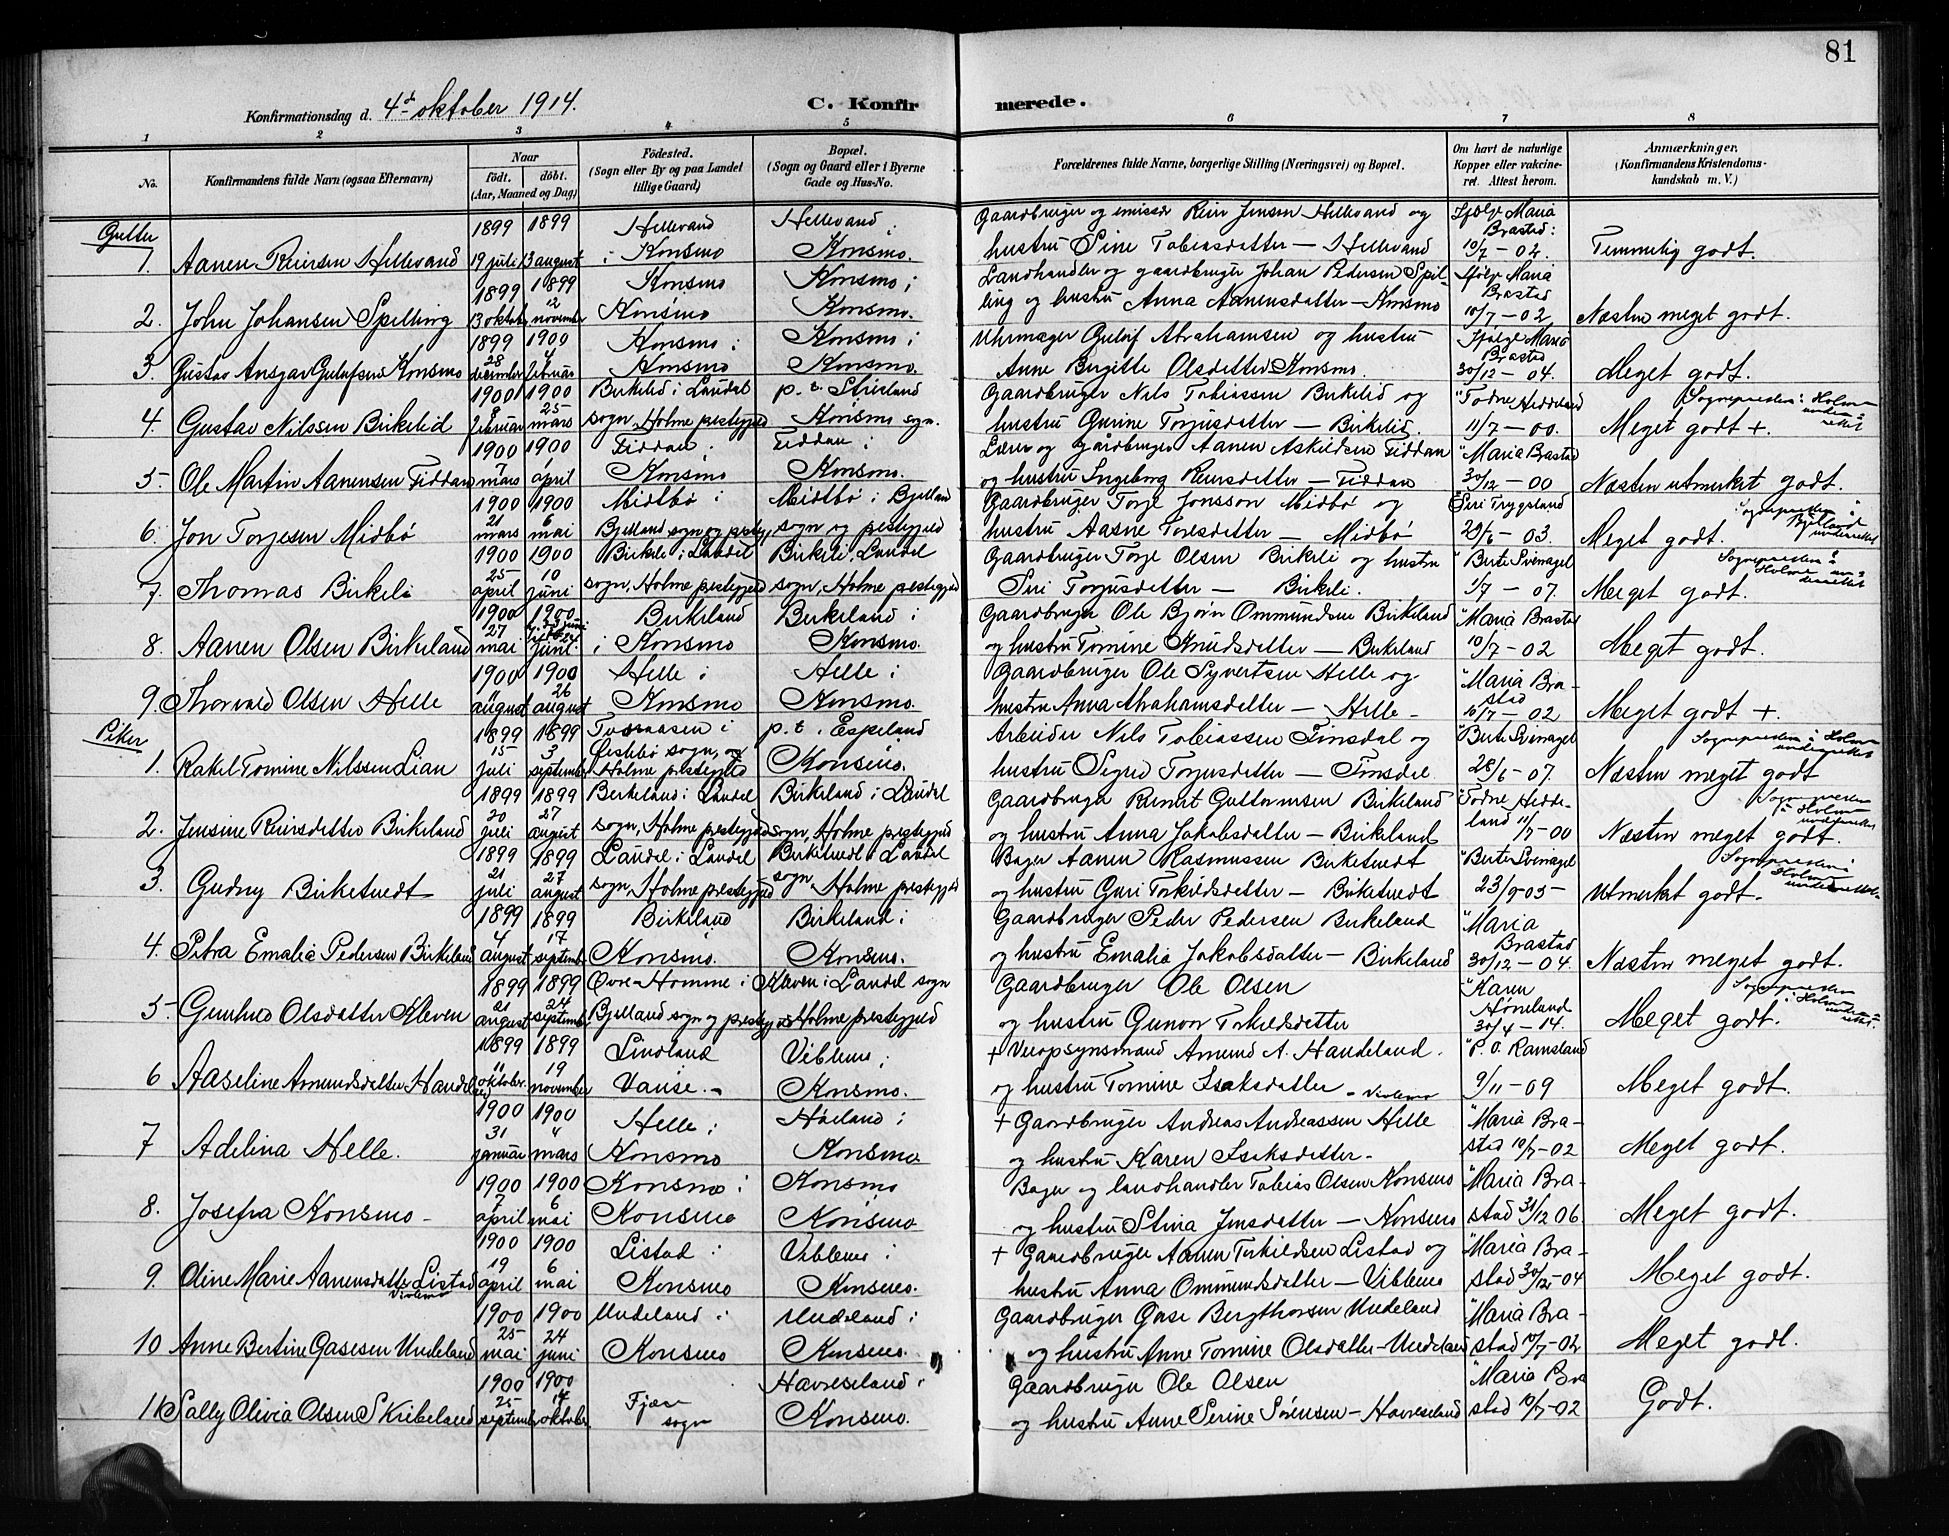 81
Konfirmationsdag d. 4d oktober 1914.
C. Konfirmerede.
1 2 3 4 5 6 7 8
No. Konfirmandens fulde Navn (ogsaa Efternavn)
Naar født. døbt. (Aar, Maaned og Dag)
Födested. (Sogn eller By og paa Landet tillige Gaard)
Bopæl. (Sogn og Gaard eller i Byerne Gade og Hus-No.
Forældrenes fulde Navne, borgerlige Stilling (Næringsvei) og Bopæl.
Om havt de naturlige Kopper eller vakcineret. Attest herom.
Anmærkninger. (Konfirmandens Kristendomskundskab m. V.)
Gutter
1899 1899 Hellevand Hellevand i Gaardbruger og emissær Reier Jensen Hellevand og Sjølv Maria Brastad:
1. Aanen Reiersen Hellevand 19 juli 13 august i Konsmo Konsmo. hustru Sine Tobiasdatter – Hellevand 10/7 – 02. Temmelig godt.
1899 1899 Konsmo Konsmo i Landhandler og gaardbruger Johan Pedersen Spil- Maria Brastad
2. John Johansen Spilling 13 oktob 2 november Konsmo Konsmo. ling og hustru Anna Aanensdatter – Konsmo 10/7 – 02 Næsten meget godt.
1899 1900 Konsmo i Konsmo i Uhrmager Guluf Abrahamsen og hustru Maria Brastad
3. Gustav Ansgar Gulufsen Konsmo 28 december 4 februar Konsmo Konsmo. Anne Birgitte Olsdatter Konsmo. 30/12 – 04. Meget godt.
1900 1900 Birkelid i Laudal p. t. Gaardbruger Nils Tobiassen Birkelid og Todne Heddeland Sognepresten i Holme undervist
4. Gustav Nilssen Birkelid 8 februar 25 mars sogn, Holme prestegjeld Konsmo sogn. hustru Gurine Torjusdatter – Birkelid. 11/7 – 00. Meget godt +.
1900 1900 Fiddan i Fiddan i Lærer og gårdbruger Aanen Askildsen Fiddan " Maria Brastad
5 Ole Martin Aanensen Fiddan 7 mars 1 april Konsmo Konsmo. og hustru Ingeborg Reiersdatter – Fiddan 30/12 – 00 Næsten utmerket godt.
1900 1900 Midtbø i Midtbø i Bjelland Gaardbruger Torje Jonsson Midbø og Siri Trygsland Sognepresten i Bjelland
6. Jon Torjesen Midbø 21 mars 6 mai Bjelland sogn og prestegj sogn og prestegjeld hustru Aasne Toresdatter – Midbø 29/6 – 03. Meget godt.
1900 1900 Birkeli i Laudal Birkeli i Laudal Gaardbruger Torje Olsen Birkeli og hustru " Berte Svenagel Sognepresten i Holme
7. Thomas Birkeli 25 april 10 juni sogn, Holme prestegjeld sogn, Holme prestegjeld Siri Torjusdatter – Birkeli. 1/7 – 07. Meget godt.
1900 1900 Birkeland Birkeland i Gaardbruger Ole Bjørn Ommundsen Birkeland " Maria Brastad
8. Aanen Olsen Birkeland 27 mai juni i Konsmo Konsmo. og hustru Tomine Knudsdatter – Birkeland 10/7 – 02 Meget godt.
1900 1900 Helle i Helle i Gaardbruger Ole Syvertsen Helle og " Maria Bra-
9. Thorvald Olsen Helle 11 august 26 august Konsmo Konsmo. hustru Anna Abrahamsdatter – Helle – stad 10/7 – 02 Meget godt +.
Piker
1899 1899 p. t. Espeland Arbeider Nils Tobiassen Finsdal og " Berte Svenagel Sognepresten i Holme undervist
1. Rakel Tomine Nilssen Lian 15 juli 3 september sogn, og Holme prestegjeld Konsmo. hustru Sigrid Torjusdatter – Finsdal. 28/6 – 07. Næsten meget godt
1899 1899 Birkeland i Laudal Birkeland i Laudal Gaardbruger Reinert Guttormsen Birkeland " Todne Hedde- Sognepresten i Holme
2. Jensine Reiersdatter Birkeland 30 juli 27 august sogn, Holme prestegjeld sogn, Holme prestegjeld og hustru Anna Jakobsdatter – Birkeland land 11/7 – 00 Næsten meget godt.
1899 1899 Laudal i Laudal Birketvedt i Laudal Bager Aanen Rasmussen Birketvedt " Berte Svenagel Sognepresten i Holme
3. Gudny Birketvedt 21 juli 27 august sogn, Holme prestegjeld sogn Holme prestegjeld og hustru Guri Torkildsdatter – Birketvedt 23/9 – 05 – Utmerket godt.
1899 1899 Birkeland Birkeland i Gaardbruger Peder Pedersen Birkeland " Maria Brastad
4. Petra Emalia Pedersen Birkeland 4 august 17 september Konsmo. Konsmo. og hustru Emalia Jakobsdatter – Birkeland 30/12 – 04. Næsten meget godt.
1899 1899 Øvre-Homme i Kleven i Laudal sogn Gaardbruger Ole Olsen " Karen Høneland Sognepresten i Holme
5 Gunhild Olsdatter Kleven 21 august 24 septemb. Bjelland sogn og prestegj Holme prestegjeld og hustru Gunvor Torkildsdatter 30/4 – 14. Meget godt.
1899 1899 Lindland Viblemo i + Veiopsynsmand Amund A. Handeland. " P. O. Ramsland
6 Aaseline Amundsdatter Handeland 11 oktober. 19 november Vanse. – Konsmo. og hustru Tomine Isaksdatter – Viblemo 9/11 – 09 Meget godt.
1900 1900 Helle i Høiland i + Gaardbruger Andreas Andreassen Helle " Maria Bra-
7 Adelina Helle. 31 januar 4 mars Konsmo Konsmo. og hustru Karen Isaksdatter – stad 10/7 – 02 Meget godt.
1900 1900 Konsmo i Konsmo Bager og landhandler Tobias Olsen Konsmo " Maria Bra-
8. Josefra Konsmo – 7 april 6 mai Konsmo Konsmo og hustru Stina Jensdatter – Konsmo stad 31/12 06 Meget godt.
1900 1900 Listad i Viblemo i + Gaardbruger Aanen Torkildsen Listad og " Maria Bra-
9. Oline Marie Aanensdatter Listad Viblemo 19 april 6 mai Konsmo Konsmo. hustru Anna Ommundsdatter – Viblemo stad 30/12 – 04 Meget godt.
1900 1900 Undeland i Undeland i Gaardbruger Gase Bergthorsen Undeland " Maria Bra-
10 Anne Bertine Gasesen Undeland 25 mai 24 juni Konsmo Konsmo. og hustru Anne Tomine Olsdatter – Undeland stad 10/7 – 02 Meget godt.
1900 1900 Havreseland i Gaardbruger Ole Olsen " Maria Bra
11 Sally Olivia Olsen Skibeland 25 septemb. 14 oktober. Fjære sogn Konsmo. og hustru Anne Serine Sørensen – Havreseland stad 10/7 – 02 Godt.